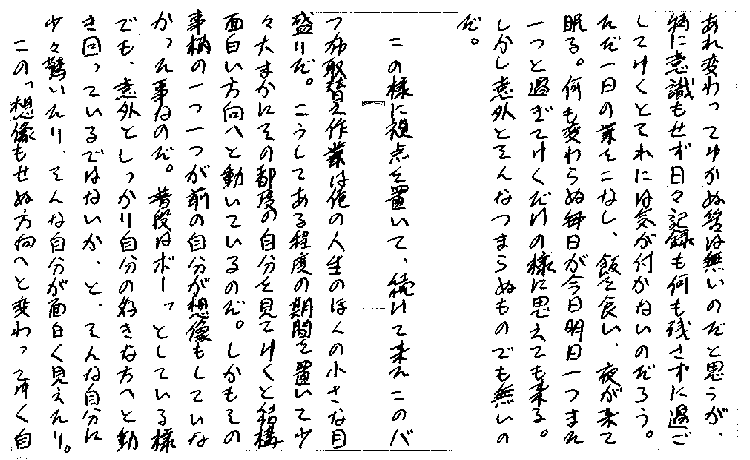 あれ変わってゆかぬ筈は無いのだと思うが、
特に意識もせず日々記録も何も残さずに過ご
してゆくとそれには気が付かないのだろう。
ただ一日の業をこなし、飯を食い、夜が来て
眠る。何も変わらぬ毎日が今日明日一つまた
一つと過ぎてゆくだけの様に思えても来る。
しかし意外とそんなつまらぬものでも無いの
だ。
この様に視点を置いて、続けて来たこのバ
つ布取替え作業は俺の人生のほんの小さな目
盛りだ。こうしてある程度の期間を置いて少
々大まかにその都度の自分を見てゆくと結構
面白い方向へと動いているのだ。しかもその
事柄の一つ一つが前の自分が想像もしていな
かった事なのだ。普段はボーッとしている様
でも、意外としっかり自分の好きな方へと動
き回っているではないか、と、そんな自分に
少々驚いたり、そんな自分が面白く見えたり。
この「想像もせぬ方向へと変わってゆく自